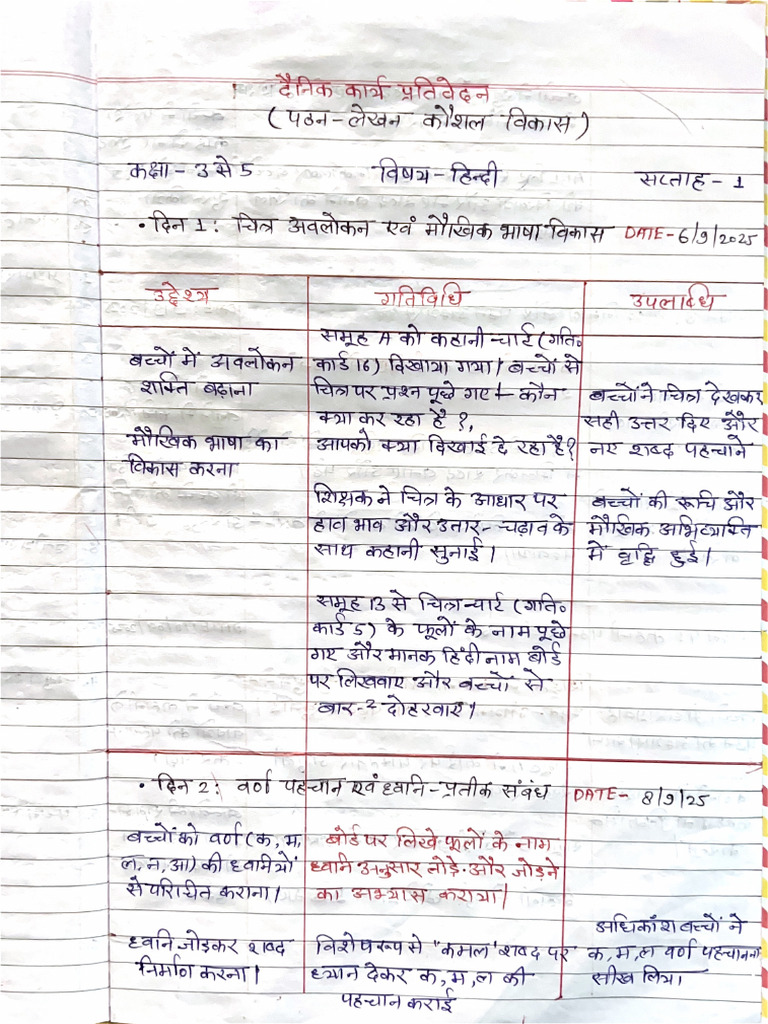 दैनिक कार्य प्रतिवेदन
(पठन-लेखन कौशल विकास)
कक्षा - 3 से 5 विषय - हिन्दी सप्ताह - 1
• दिन 1: चित्र अवलोकन एवं मौखिक भाषा विकास DATE - 6/9/2025
उद्देश्य गतिविधि उपलब्धि
बच्चों में अवलोकन
शक्ति बढ़ाना
मौखिक भाषा का
विकास करना
समूह A को कहानी चार्ट (गति॰
कार्ड 16) दिखाया गया। बच्चों से
चित्र पर प्रश्न पूछे गए - कौन
क्या कर रहा है?,
आपको क्या दिखाई दे रहा है?
शिक्षक ने चित्र के आधार पर
हाव भाव और उतार-चढ़ाव के
साथ कहानी सुनाई।
समूह B से चित्र चार्ट (गति॰
कार्ड 5) के फूलों के नाम पूछे
गए और मानक हिंदी नाम बोर्ड
पर लिखवाए और बच्चों से
बार-2 दोहरवाए।
बच्चों ने चित्र देखकर
सही उत्तर दिए और
नए शब्द पहचाने
बच्चों की रूचि और
मौखिक अभिव्यक्ति
में वृद्धि हुई।
• दिन 2: वर्ण पहचान एवं ध्वनि-प्रतीक संबंध DATE - 8/9/25
बच्चों को वर्ण (क, म,
ल, न, आ) की ध्वनियों
से परिचित कराना।
ध्वनि जोड़कर शब्द
निर्माण करना।
बोर्ड पर लिखे फूलों के नाम
ध्वनि अनुसार तोड़े और जोड़ने
का अभ्यास कराया।
विशेष रूप से "कमल" शब्द पर
ध्यान देकर क, म, ल की
पहचान कराई
अधिकाँश बच्चों ने
क, म, ल वर्ण पहचानना
सीख लिया।